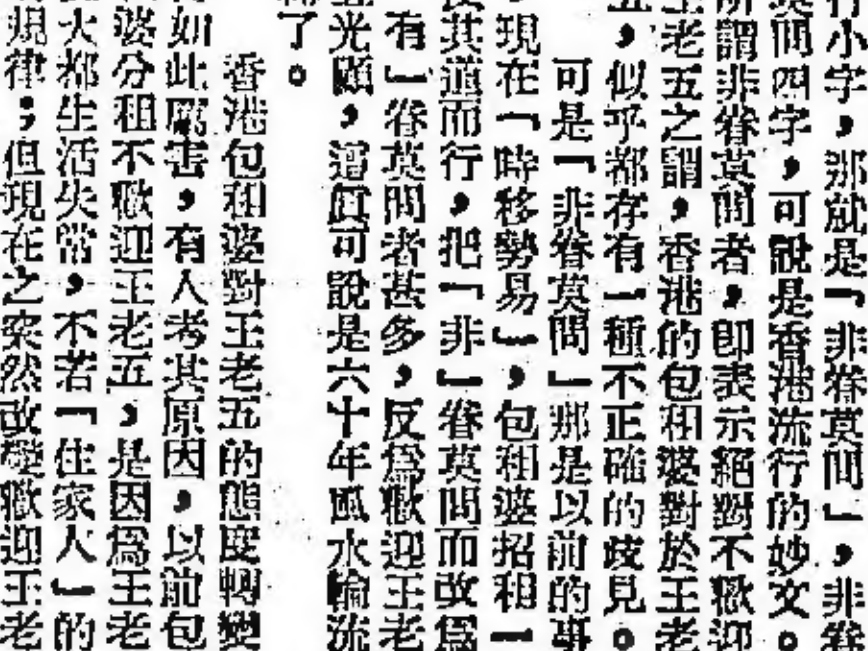 行小字，那就是「非眷莫問」，非眷
莫問四字，可說是香港流行的妙文。
所謂非眷莫問者，卽表示絕對不歡迎
王老五之謂，香港的包租婆對於王老
五，似乎都存有一種不正確的歧見。
可是「非眷莫問」那是以前的事
現在「時移勢易」，包租婆招租一
其道而行，把「非」眷莫問而改爲
有」眷莫問者甚多，反爲歡迎王老
光顧，這眞可說是六十年風水輪流
了。
香港包租婆對王老五的態度轉變
如此厲害，有人考其原因，以前包
婆分租不歡迎王老五，是因爲王老
大都生活失常，不若「住家人」的
規律；但現在之突然改變歡迎王老